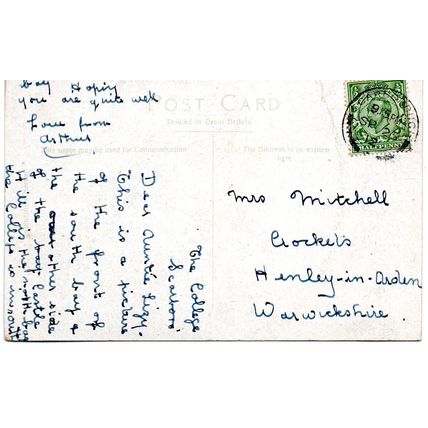 bay Hoping
you are quite well
love from
Arthur
POST CARD
Printed in Great Britain
This space may be used for Communication
The Address to be written
here
Mrs Mitchell
Crockets
Henley-in-Arden
Warwickshire
The College
Scarboro'
Dear Auntie Lizy.
This is a picture
of the front of
the south bay &
the other side
of the bay Castle
Hill is the north bay
the College is in north